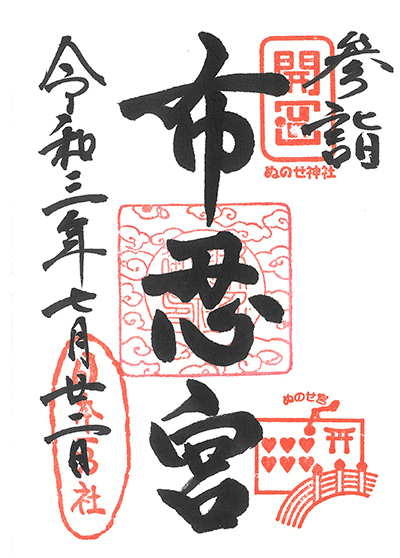 参詣
開運
ぬのせ神社
布忍宮
ぬのせ宮
令和三年七月廿二日